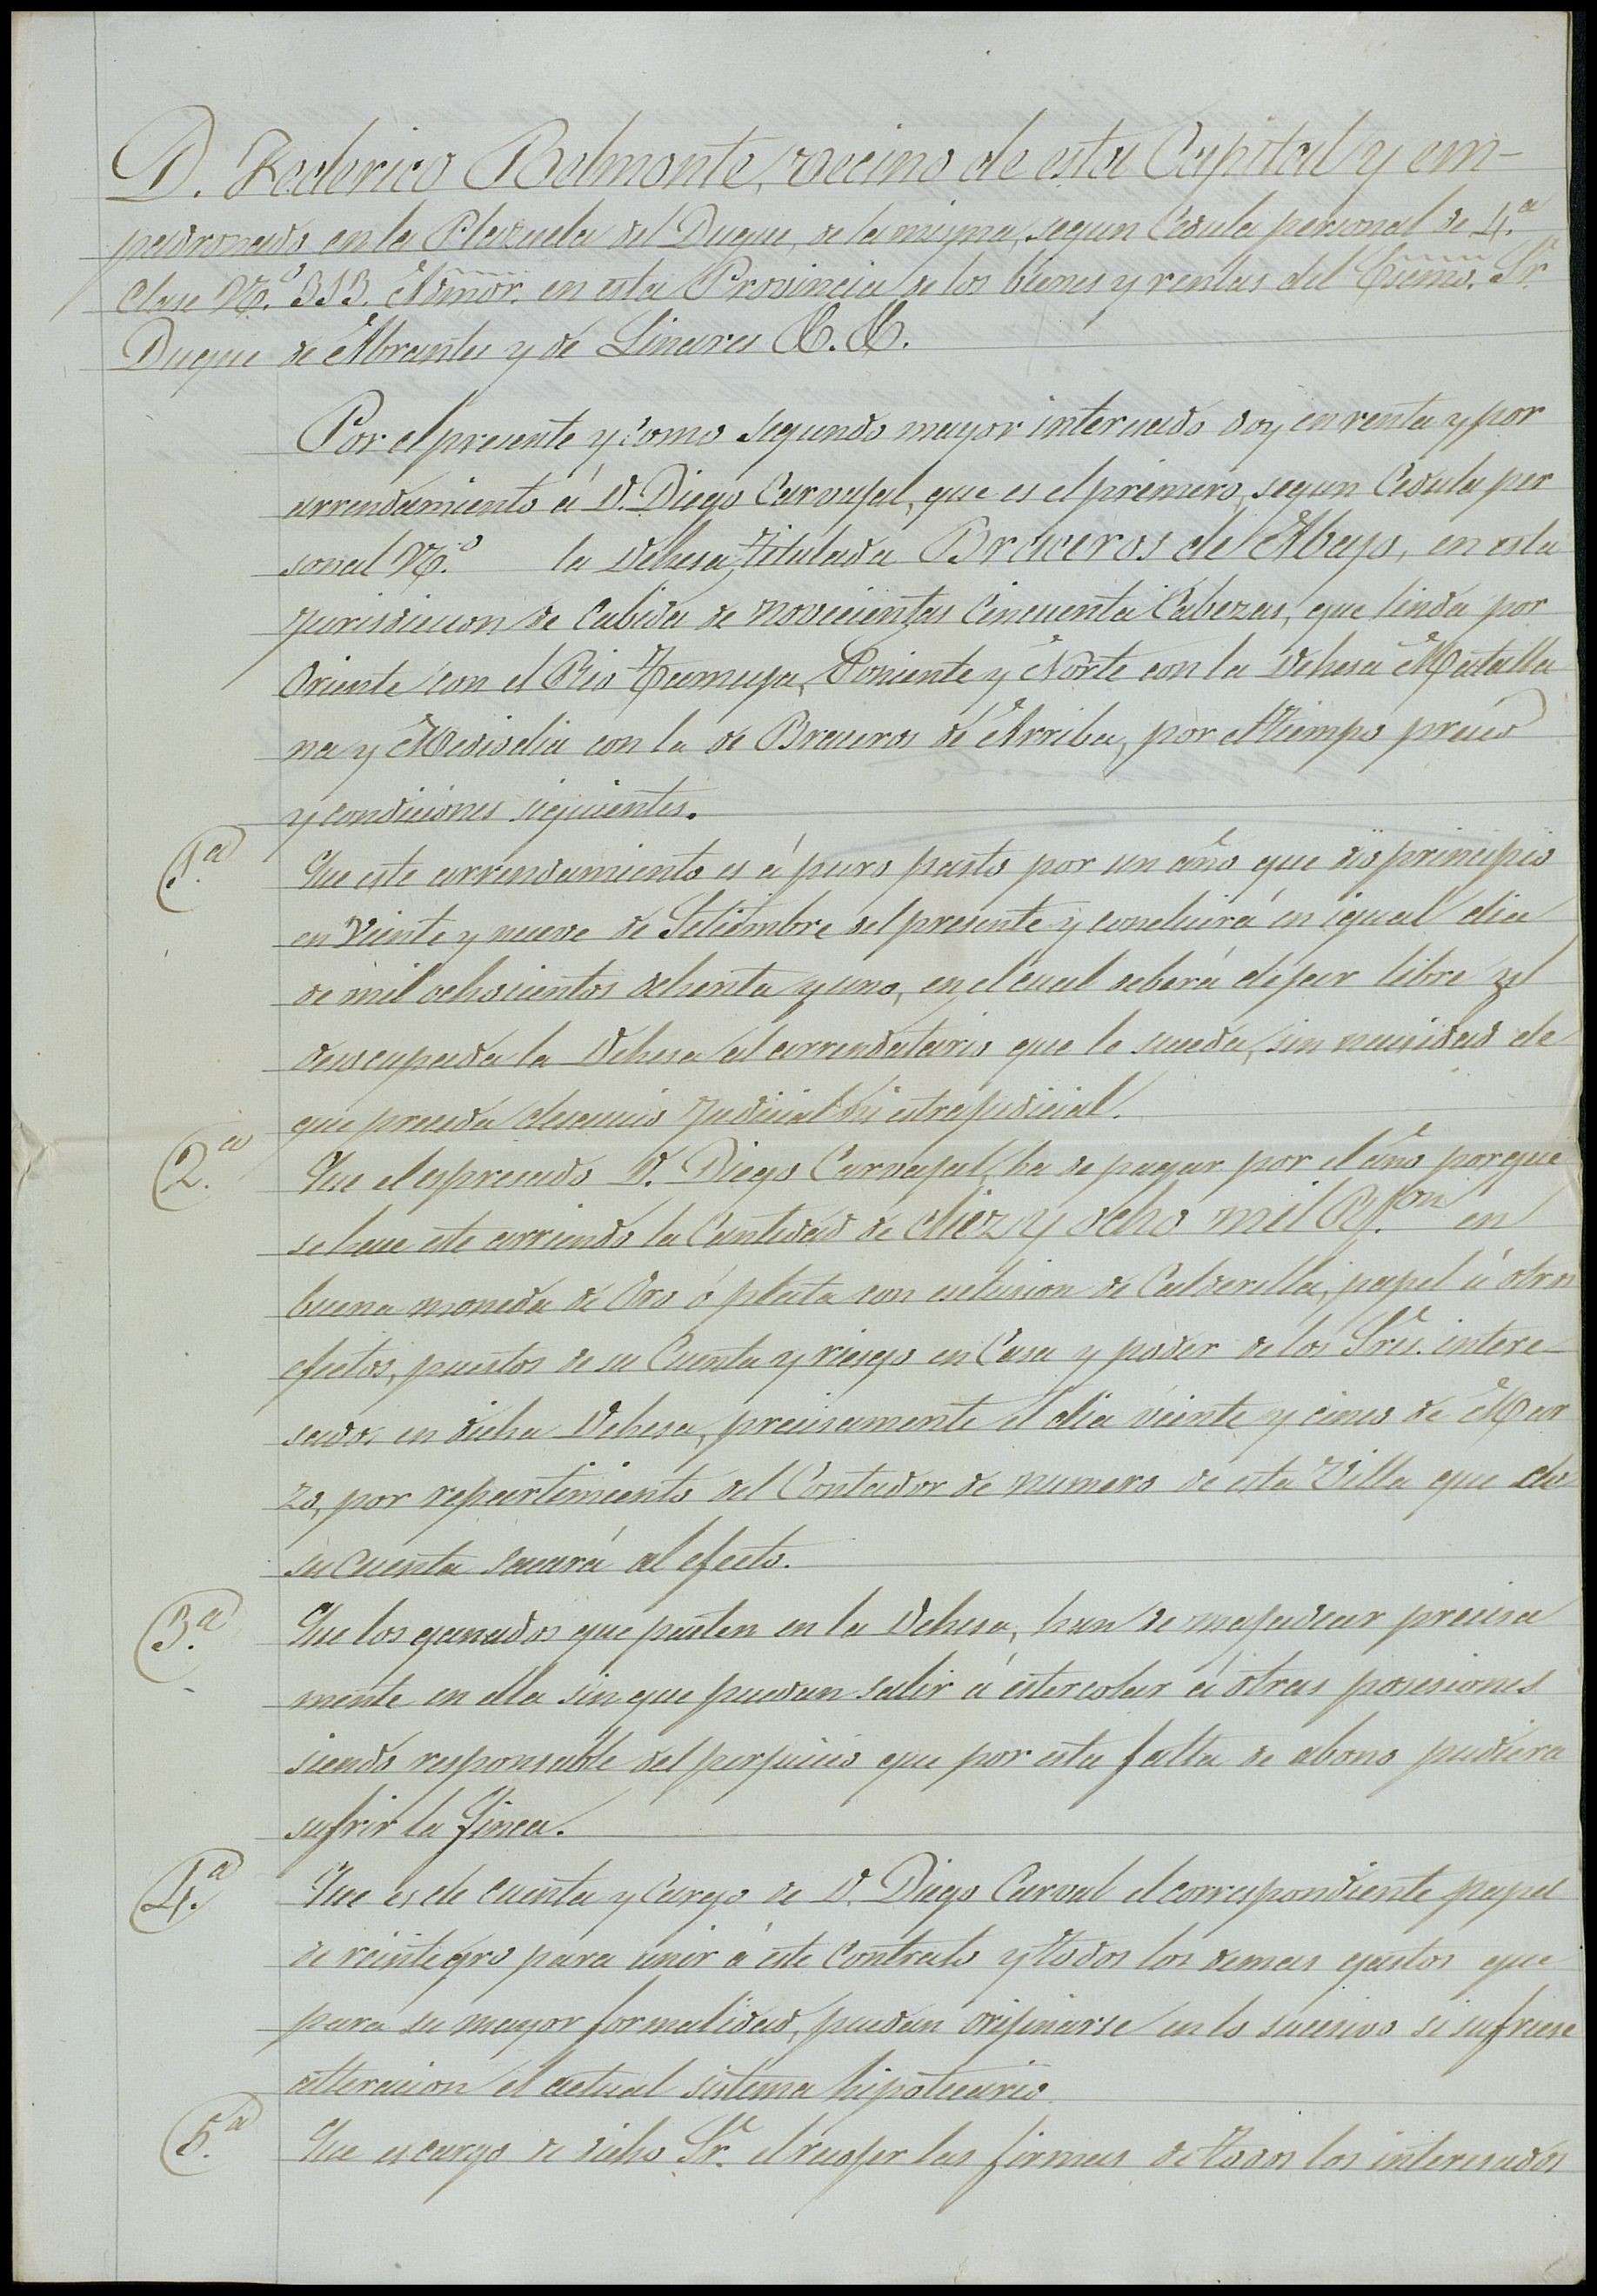 D. Federico Belmonte, vecino de esta Capital y em-
padronado en la Plazuela del Duque, de la misma, segun Cedula personal de 4.ª
Clase N.º 313. Admor. en esta Provincia de los bienes y rentas del Escmo. Sr.
Duque de Abrantes y de Linares &. &.
Por el presente y como segundo mayor interesado doy en renta y por
arrendamiento á D. Diego Carvajal, que es el primero, segun Cedula per
sonal N.º la Dehesa titulada Braceros de Abajo, en esta
jurisdiccion de Cabida de novecientas Cincuenta Cabezas, que linda por
Oriente con el Rio Tamuja, Poniente y Norte con la Dehesa Matalla
na y Mediodia con la de Braceros de Arriba, por el tiempo precio
y condiciones siguientes.
1.ª Que este arrendamiento es á puro pasto por un año que dió principio
en Veinte y nueve de Setiembre del presente y concluirá en igual dia
de mil ochocientos ochenta y uno, en el cual deberá dejar libre y
desocupada la Dehesa al arrendatario que le suceda, sin necesidad de
que preceda desaucio judicial ni estrajudicial.
2.ª Que el espresado D. Diego Carvajal, ha de pagar por el año porque
se hace este arriendo la Cantidad de diez y ocho mil R.s on en
buena moneda de Oro ó plata con esclusion de Calderilla, papel ú otros
efectos, puestos de su Cuenta y riesgo en Casa y poder de los Sres. intere-
sados en dicha Dehesa, precisamente el dia veinte y cinco de Mar
zo, por repartimiento del Contador de numero de esta Villa que de
su cuenta sacará al efecto.
3.ª Que los ganados que pasten en la Dehesa, han de majadear precisa
mente en ella sin que puedan salir á estercolar á otras posesiones
siendo responsable del perjuicio que por esta falta de abono pudiera
sufrir la finca.
4.ª Que es de cuenta y cargo de D. Diego Carval el correspondiente papel
de reintegro para unir á este contrato y todos los demas gastos que
para su mayor formalidad, puedan orijinarse en lo sucesivo si sufriese
alteracion el actual sistema hipotecario
5.ª Que es cargo de dicho Sr. el recojer las firmas de todos los interesados